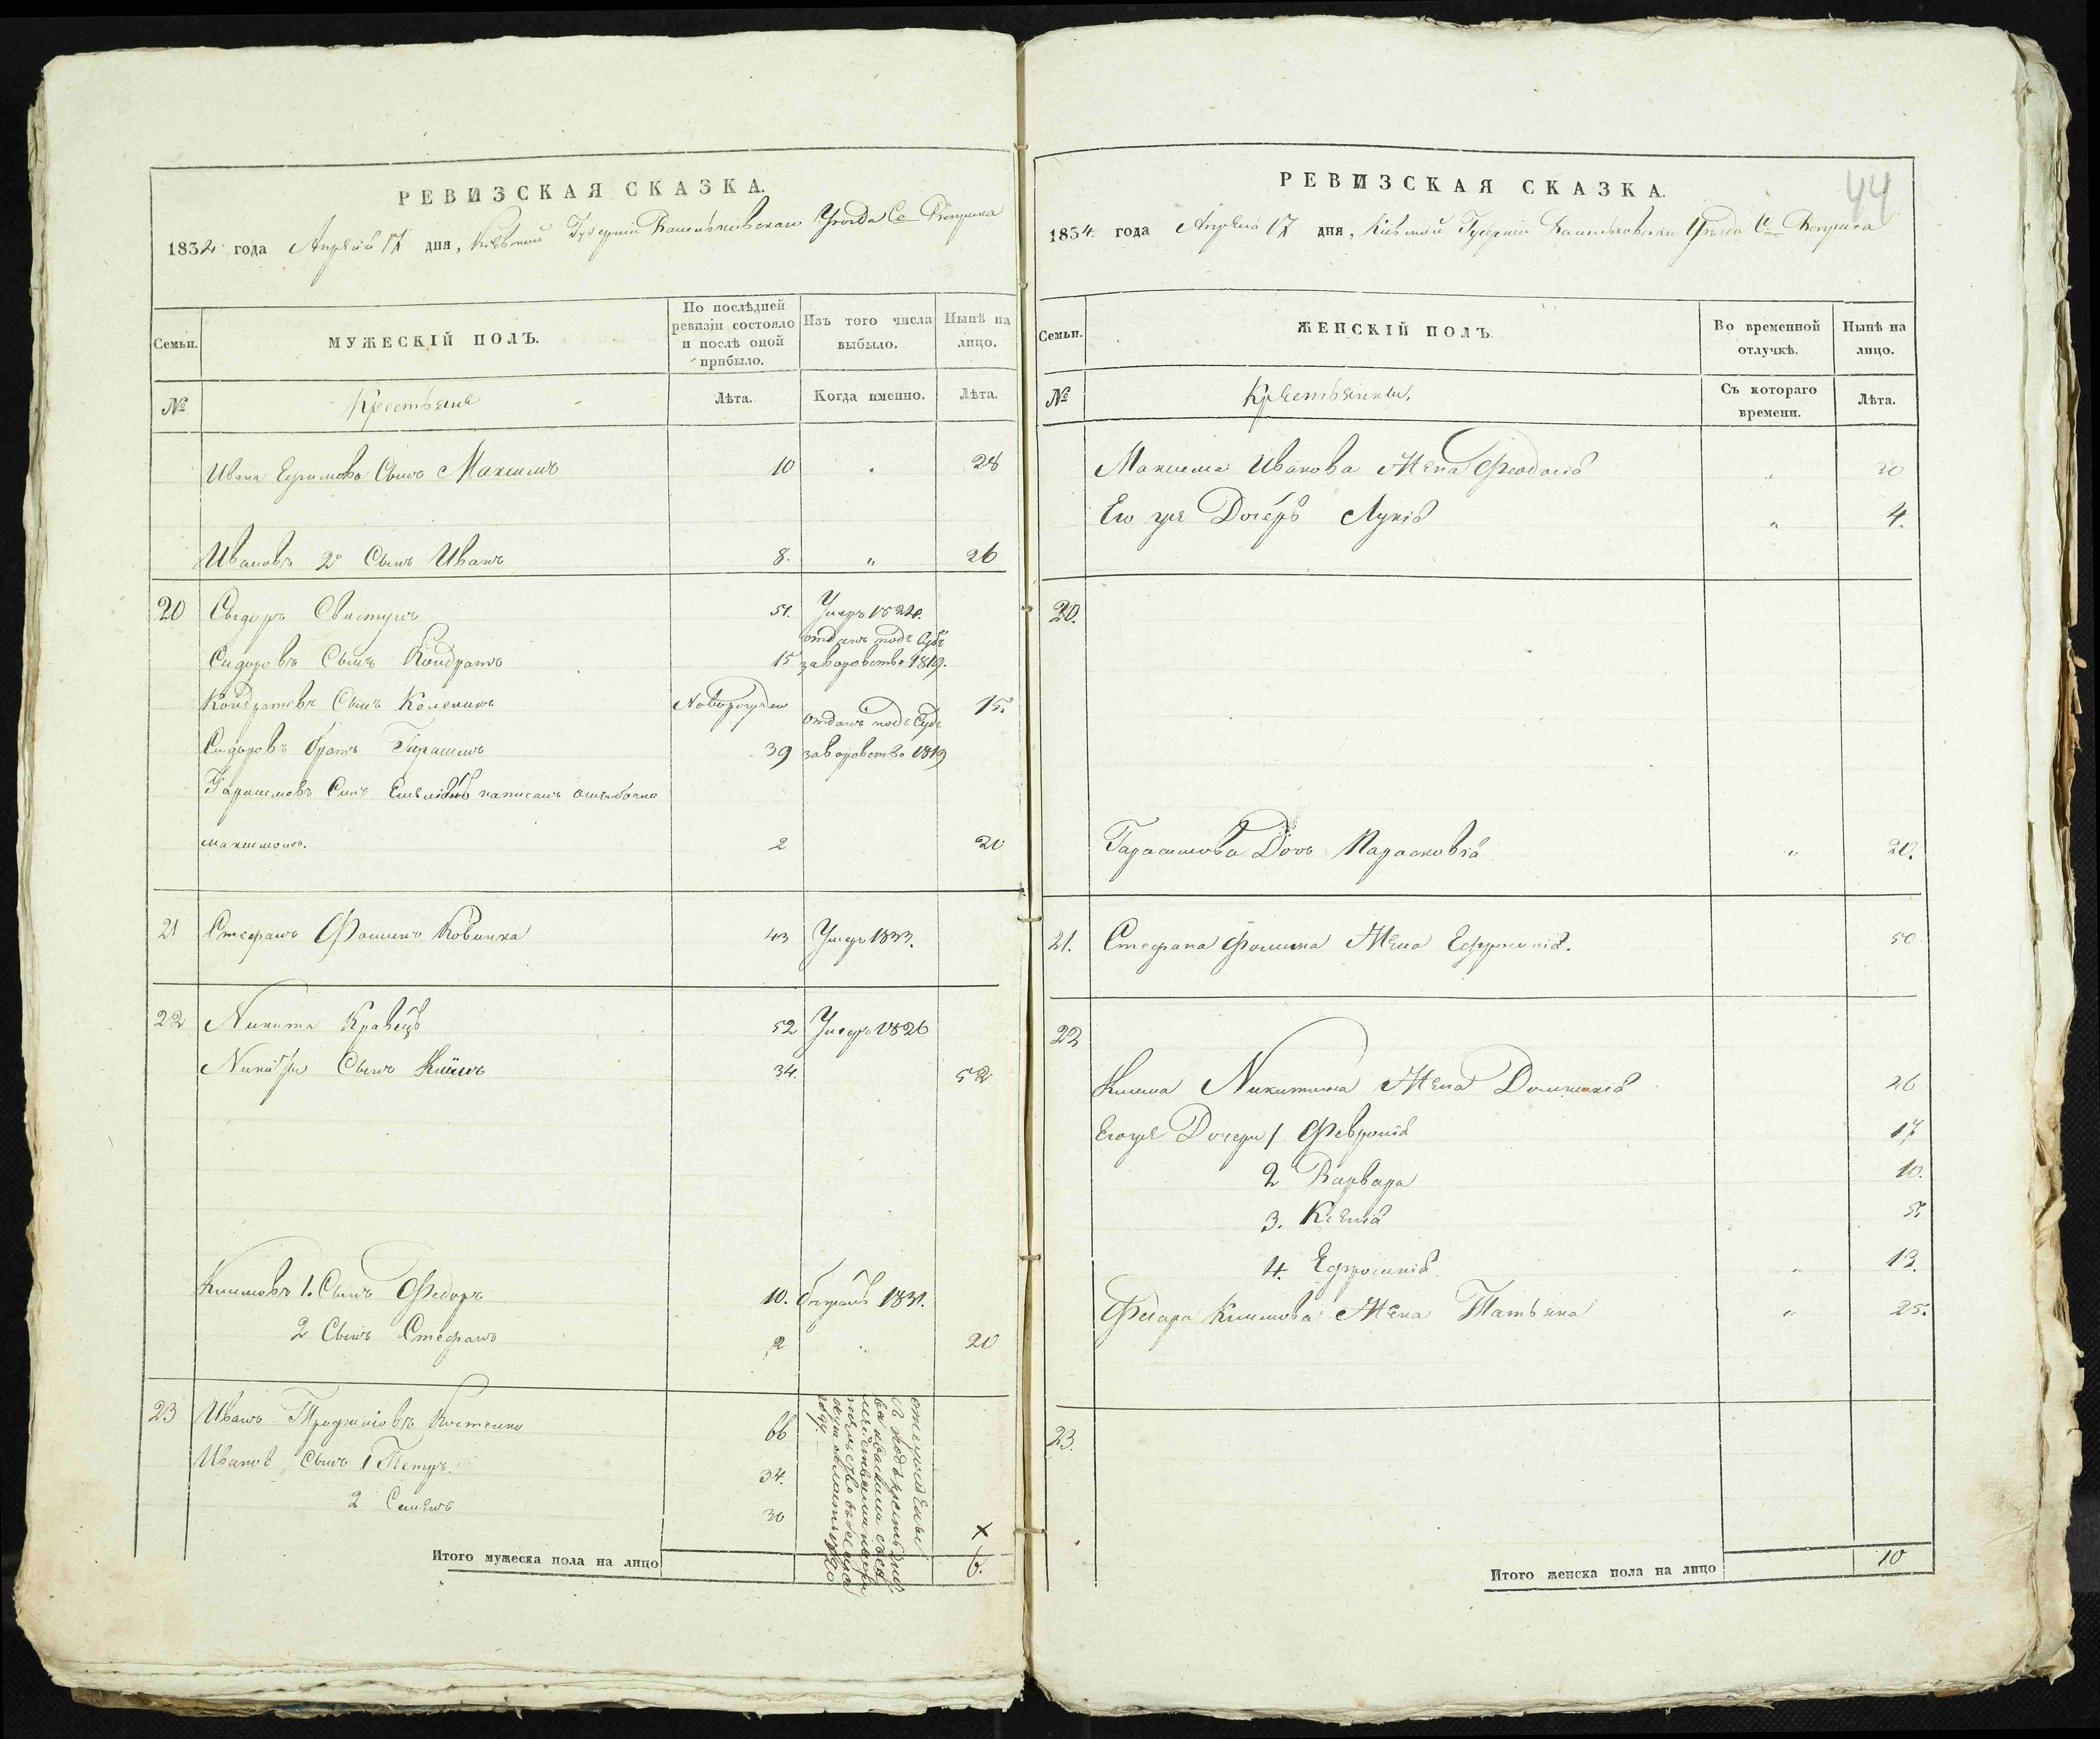 РЕВИЗСКАЯ СКАЗКА.
1834 года Апреля 17 дня, Кіевской Губерніи Васильковскаго Уезда Се Веприка
Семьи.
МУЖЕСКІЙ ПОЛЪ.
По послѣдней ревизіи состояло и послѣ оной прибыло.
Изъ того числа выбыло.
Нынѣ на лицо.
№
Крестьяне
Лѣта.
Когда именно.
Лѣта.
Ивана Ефимова Сынъ Максимъ 10 28
Ивановъ 2й Сынъ Иванъ 8. " 26
20 Сидоръ Свистунъ 51. Умеръ 1824.
Сидоровъ Сынъ Кондратъ 15 отданъ подъ Судъ за воровство 1819.
Кондратовъ Сынъ Каленикъ Новорожден 15.
Сидоровъ братъ Гарасимъ 39 отданъ подъ Судъ за воровство 1819
Гарасимовъ Сынъ Емельянъ написанъ ошибочно
Максимомъ. 2 20
21 Стефанъ Фоминъ Ковинка 43 Умеръ 1833.
22 Никита Кравецъ 52 Умеръ 1826
Никиты Сынъ Климъ 34. 52
Климовъ 1. Сынъ Федоръ 10. бежалъ 1831.
2 Сынъ Стефанъ 2 " 20
23 Иванъ Трофимовъ Костенко 66
Ивановъ Сынъ 1 Петръ. 34.
2 Семенъ 30
×
Итого мужеска пола на лицо 6.
44
РЕВИЗСКАЯ СКАЗКА.
1834. года Апреля 17 дня, Кіевской Губерніи Васильковскаго Уезда Се Веприка
Семьи.
ЖЕНСКІЙ ПОЛЪ.
Во временной отлучкѣ.
Нынѣ на лицо.
№
Крестьянки.
Съ котораго времени.
Лѣта.
Максима Иванова Жена Феодосія " 20
Его же Дочерь Лукія " 4.
20.
Гарасимова Дочь Парасковія " 20.
21. Стефана Фомина Жена Ефросинія. 50
22
Клима Никитина Жена Домникія 26
Егоже Дочери 1 Февронія 17
2 Варвара 10.
3. Ксенія 5.
4. Ефросинія " 13.
Федора Климова Жена Татьяна " 25.
23.
Итого женска пола на лицо 10